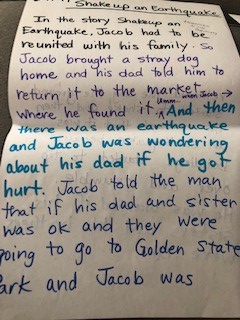 Shakeup an Earthquake
In the story Shakeup an
Earthquake, Jacob had to be
reunited with his family. So
Jacob brought a stray dog
home and his dad told him to
return it to the market
when Jacob →
where he found it. Umm And then
there was an earthquake
and Jacob was wondering
about his dad if he got
hurt. Jacob told the man
that if his dad and sister
was ok and they were
going to go to Golden State
Park and Jacob was